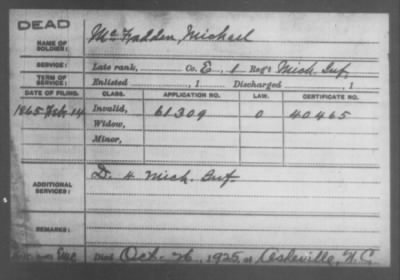 DEAD
NAME OF SOLDIER: McFadden, Michael
SERVICE: Late rank, Co. E, 1 Reg't Mich. Inf.
TERM OF SERVICE: Enlisted , 1 Discharged , 1
DATE OF FILING. CLASS. APPLICATION NO. LAW. CERTIFICATE NO.
1865 Feb. 14 Invalid, 61309 0 40465
Widow,
Minor,
ADDITIONAL SERVICES: D. 4 Mich. Inf.
REMARKS:
Died Oct. 26, 1925, at Asheville, N.C.